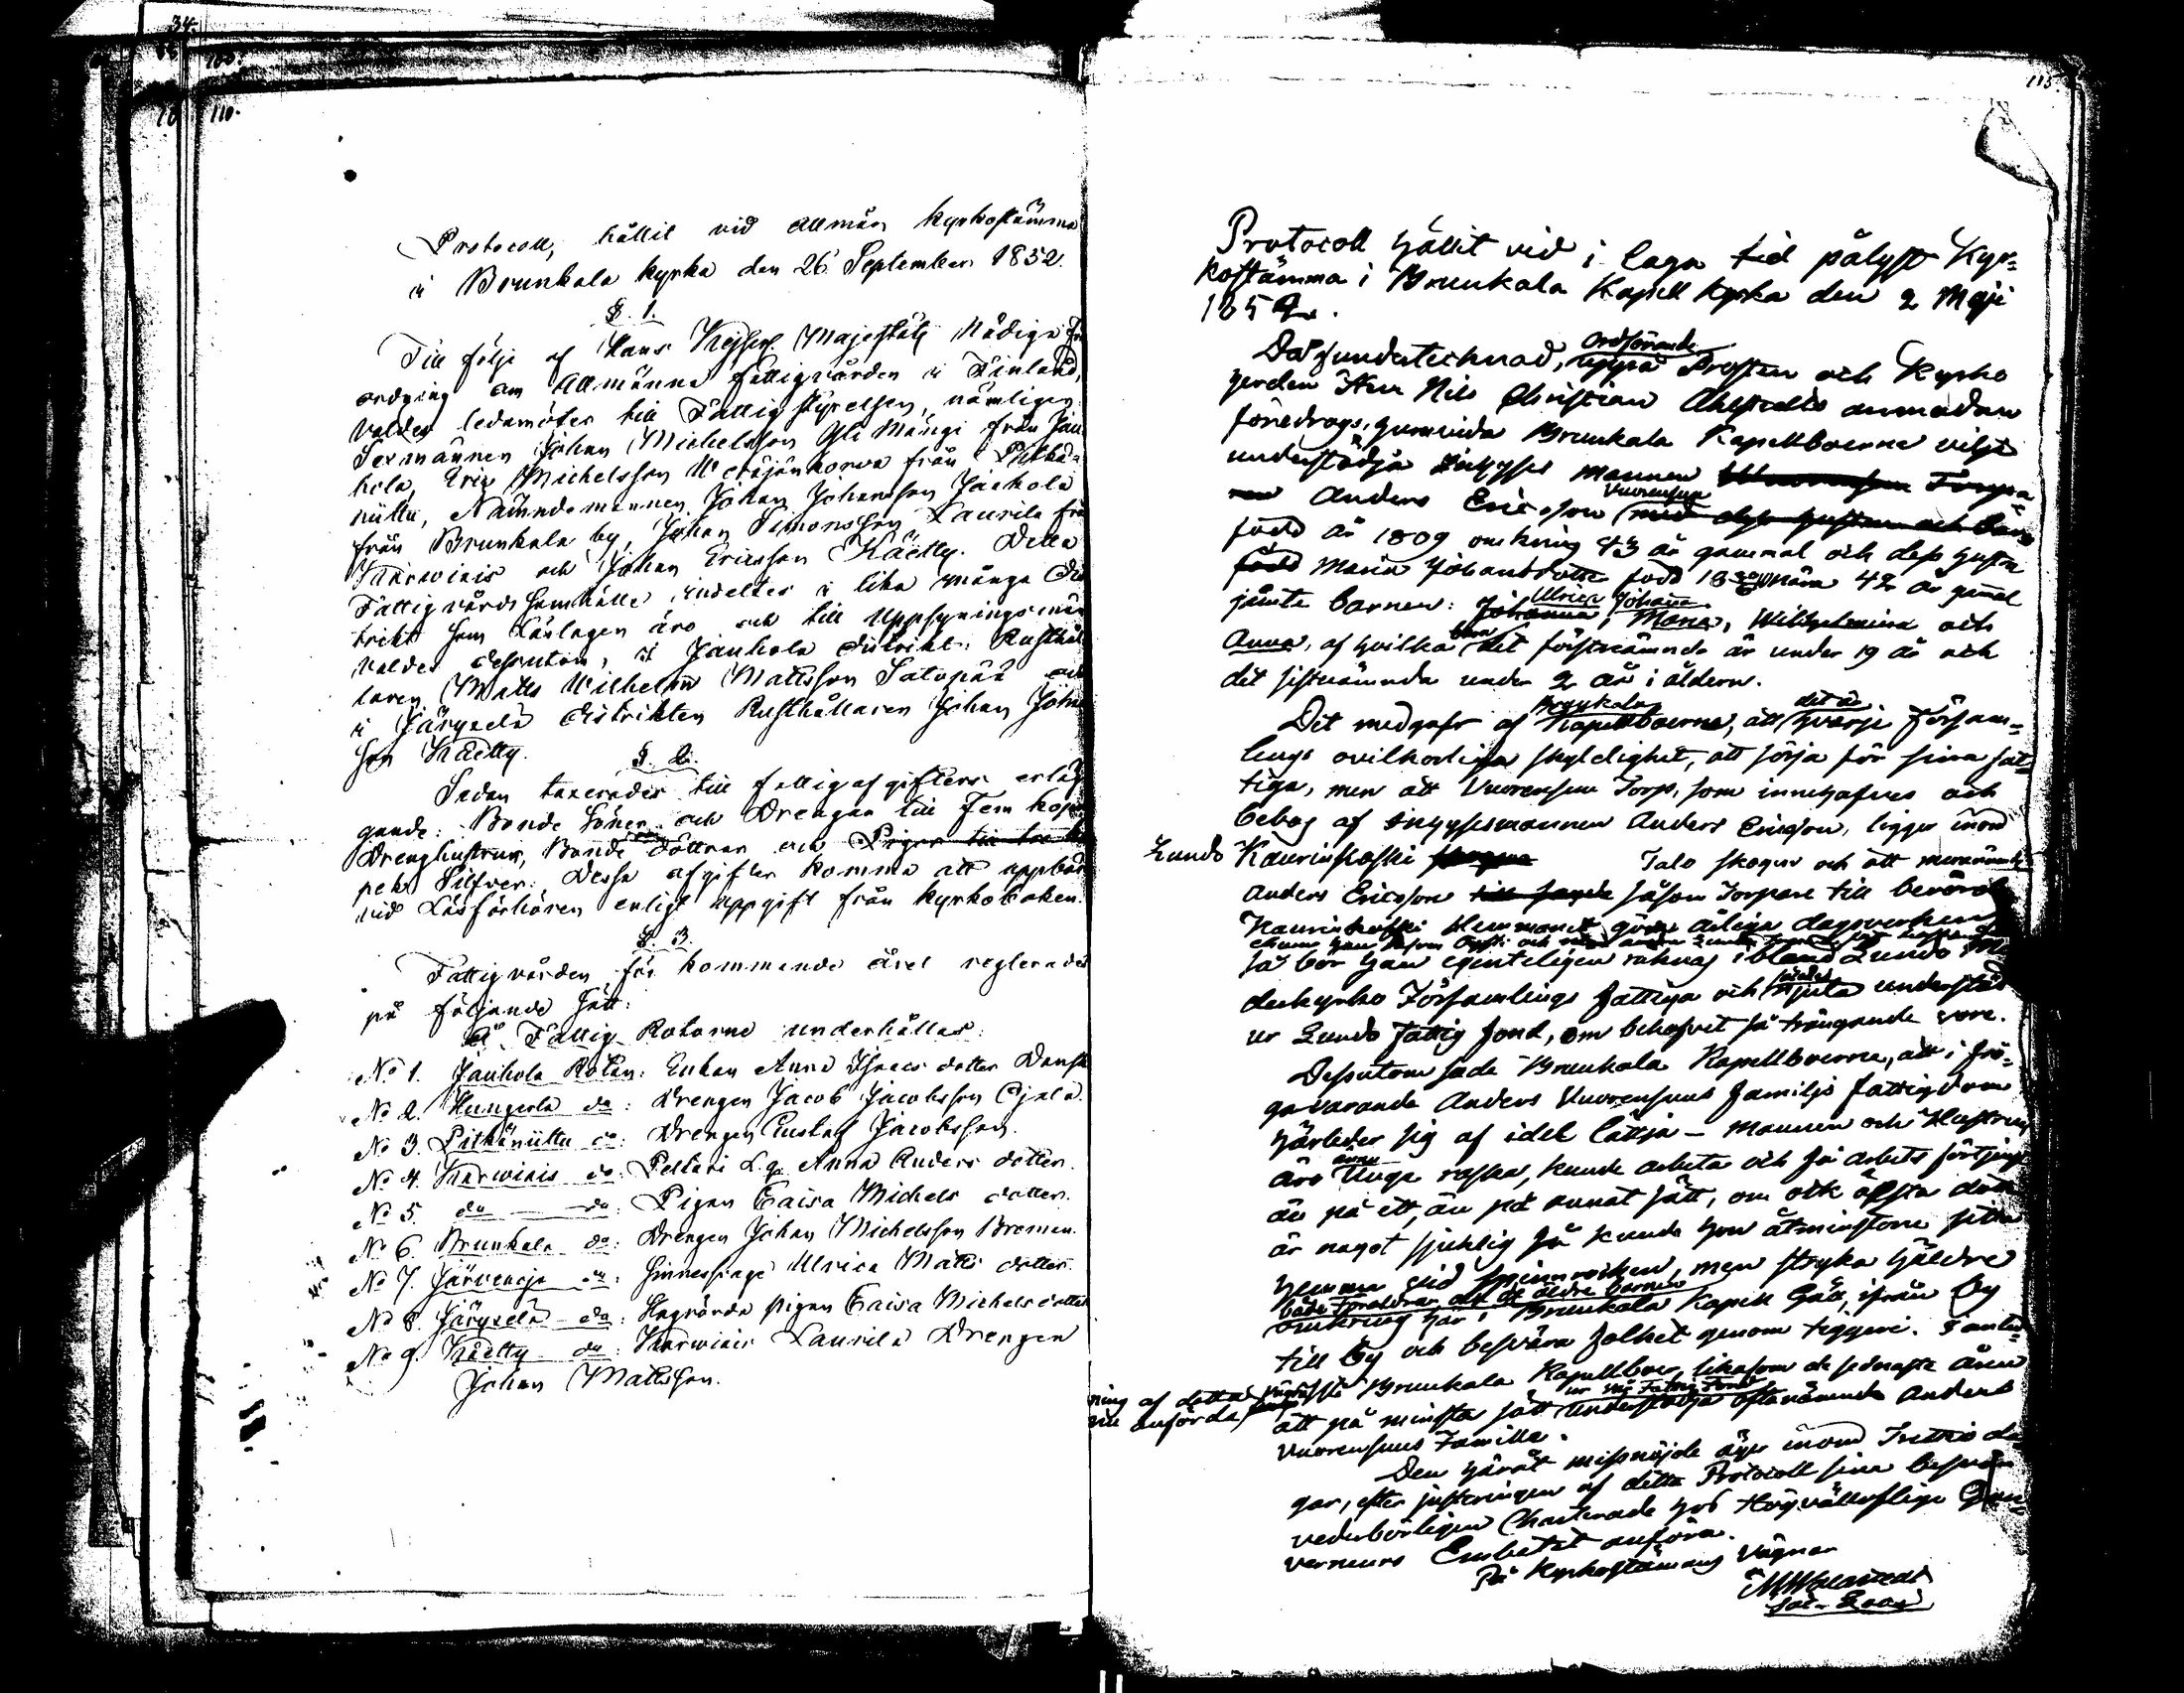 34.
100.
110.
Protocoll, hållit vid allmän Kyrkostämma
i Brunkala kyrka den 26 September 1852.
§. 1.
Till följe af Hans Kejserl. Majestäts Nådiga
ordning om Allmänna fattigvården i Finland,
valdes ledamöter till Fattigstyrelsen, nämligen
Sexmännen Johan Michelsson Yli Mängi från Jau
hola, Eric Michelsson från Pitkä-
niittu, Nämndemannen Johan Johansson Jaakola
från Brunkala by, Johan Simonsson Laurila frå
Karviais och Johan Ericsson Kåetty. Detta
Fattigvårds samhälle indeltes i lika många di
trikt som Läslagen äro och till Uppsyningsmän
valdes dessutom, i Jauhola distrikt: Rusthål
laren Matts Wilhelm Mattsson Satopää och
i Järykselä distrikten Rusthållaren Johan Joh
son Kåetty.
§. 2.
Sedan taxerades till fattigafgifters erläg
gande: Bonde Söner och Drengar till Fem kope
Drenghustrur, Bonde döttrar och Pigor till tre
pek Silfver: Dessa afgifter komma att uppbär
vid Läsförhören enligt uppgift från kyrkoboken.
§. 3.
Fattigvården för kommande året reglerades
på följande sätt:
Fattig Rotarne underhålles:
No 1. Jauhola Rotan: Enkan Anna Isaacs dotter
No 2. Hungerla do: Drengen Jacob Jacobsson Ojala.
No 3. Pitkäniittu do: Drengen Gustaf Jacobsson.
No 4. Karviais do: Peltari Anna Anders dotter.
No 5. do — do: Pigan Caisa Michels dotter.
No 6. Brunkala do: Drengen Johan Michelsson Broman.
No 7. Järvenoja do: Sinnessvage Ulrica Matts dotter.
No 8. Järykselä do: Vanvårda pigan Caisa Michelsdotter
No 9. Kåetty do: Karviais Laurila Drengen
Johan Mattsson.
115.
Protocoll hållit vid i laga tid pålyst Kyr-
kostämma i Brunkala Kapell Kyrka den 2 Maji
1852.
Ordförande
Då undertecknad, uppå Prosten och Kyrko
herden Herr Nils Christian Ahlstedts anmodan
föredrogs, huruvida Brunkala Kapellboerne vilja
understödja Inhyses mannen
Vuorensuu
Anders Ericsson med dess hustru och barn
född år 1809 omkring 43 år gammal och dess hustru
född Maria Johansdotter född 18 nära 42 år gamal
Ulrica Johanna
jämte barnen: Johanna, Maria, Wilhelmina och
barn
Anna, af hvilka det förstnämnde är under 19 år och
det sistnämnda under 2 år i åldern.
Brunkala det är
Det medgafs af Kapellboerne, att hvarje Försam-
lings ovilkorliga skyldighet, att sörja för sina fat-
tiga, men att Vuorensuu Torp, som innehafves och
bebos af inhysesmannen Anders Ericsson, ligger inom
Lundo Kaurinkoski Talo skogar och att
Anders Ericsson till såsom Torpare till berörde
Kaurinkoski Hemmanet göra årliga dagsverken
så bör han egenteligen räknas ibland Lundo Mo
derkyrko Församlings fattiga och njuta understöd
ur Lundo Fattig fond, om behofvet så trängande vore.
Dessutom sade Brunkala Kapellboerne, att i frå-
ga varande Anders Vuorensuus Familjs fattigdom
härleder sig af idel lättja – mannen och Hustrun
ännu
äro unga raska, kunde arbeta och få arbets förtjenst
än på ett, än på annat sätt, om ock äldsta dottern
är något sjuklig så kunde hon åtminstone sitta
hemma vid Spinnrocken, men stryka hälldre
både Föräldrar och de äldre barnen
omkring här i Brunkala Kapell Gäll, ifrån by
till by och besvära folket genom tiggeri. I anled-
ning af detta
nu anförda vägrade Brunkala Kapellboer, likasom de sednaste åren
ur sin Fattig Fond
att på minsta sätt understödja oftanämnde Anders
Vuorensuus Familie.
Den häråt missnöjde äger inom Trettio da-
gar, efter justeringen af detta Protocoll sina besvär
vederbörligen Charterade hos Höglofliga Gou-
verneurs Embetet anföra.
På Kyrkostämmans Vägnar